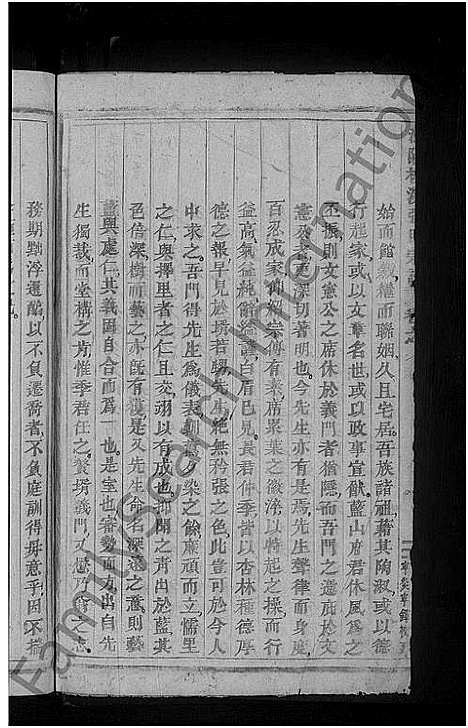 始而館穀繼而聯姻久且宅居吾族諸祖藉其陶淑或以德
行起家或以文章名世或以政事宣猷藍山府君休風為之
丕振則文憲公之席休於義門者猶隱而吾門之遺庇於文
憲公者更深切著明也今先生亦有是焉先生聲律而身度
百忍成家仰紹宗傳有素席累葉之徽淬以特起之操而行
益高氣益純餘緒讀白眉已見長君仲季皆以杏林種德厚
德之報早見於堉若朝先生絕無矜張之色此豈可於今人
中求之吾門得先生為儀表馴習染之餘廉頑而立懦里
之仁與擇里者之仁且交翊以有成也抑聞之青出於藍其
色倍深樹而藝之亦既有獲是父先生命名深遠之意則藝
藍與處仁其義固自合而為一也是堂也審勢面方出自先
生獨裁而堂構之肯惟季君任之贅壻義門丈懋乃翁之志
務期黜浮還醇以不負遷喬者不負庭訓得毋意乎因不揣
FamilySearch International